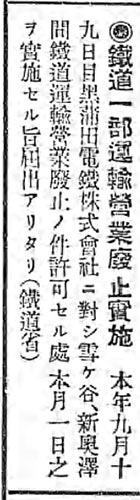 ◉鐵道一部運輸營業廢止實施　本年九月十
九日目黒蒲田電鐵株式會社ニ對シ雪ケ谷、新奧澤
間鐵道運輸營業廢止ノ件許可セル處本月一日之
ヲ實施セル旨屆出アリタリ（鐵道省）